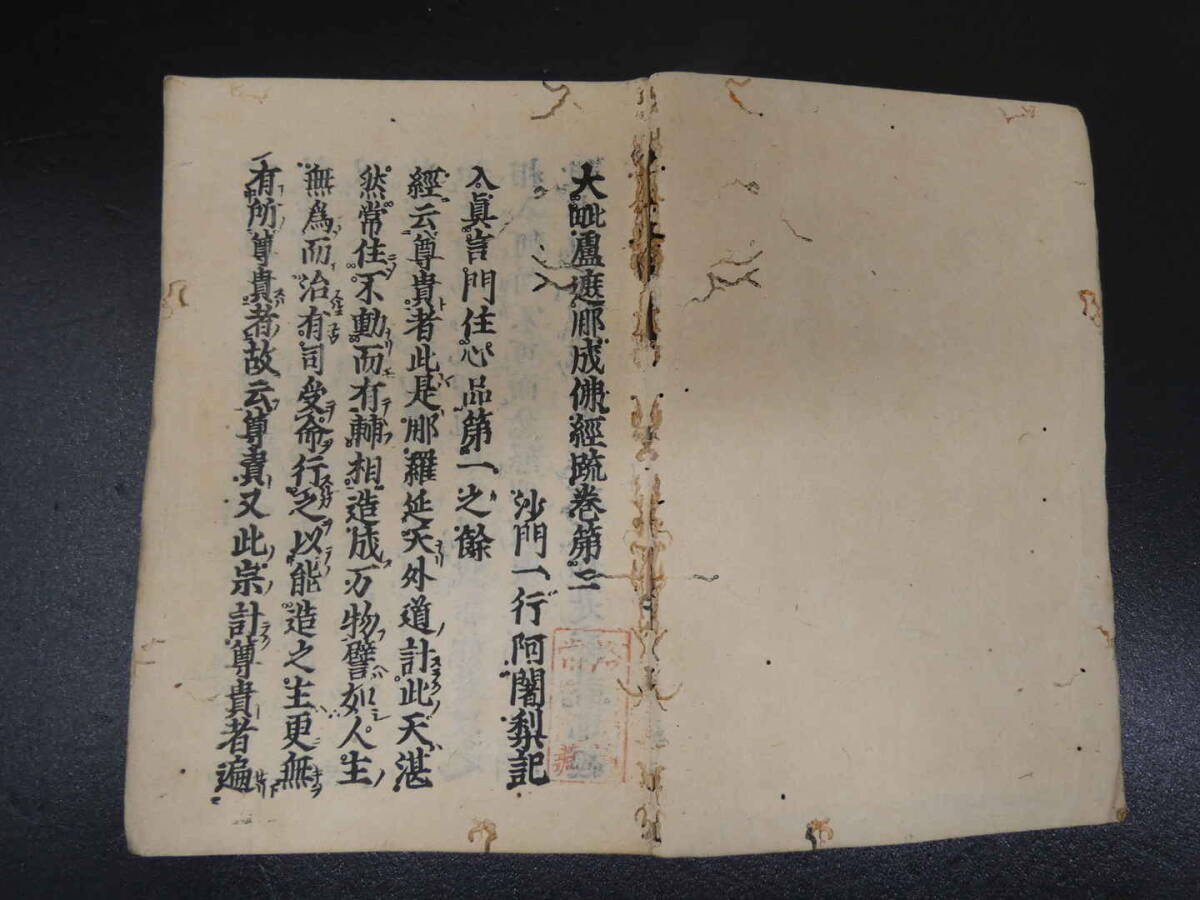 大毗盧遮那成佛經䟽卷第二
沙門一行阿闍梨記
入眞言門住心品第一之餘
經云尊貴者此是那羅延天外道計此天湛
然常住不動而有輔相造成万物譬如人主
無爲而治有司受命行之以能造之主更無
有所尊貴者故云尊貴又此宗計尊貴者遍